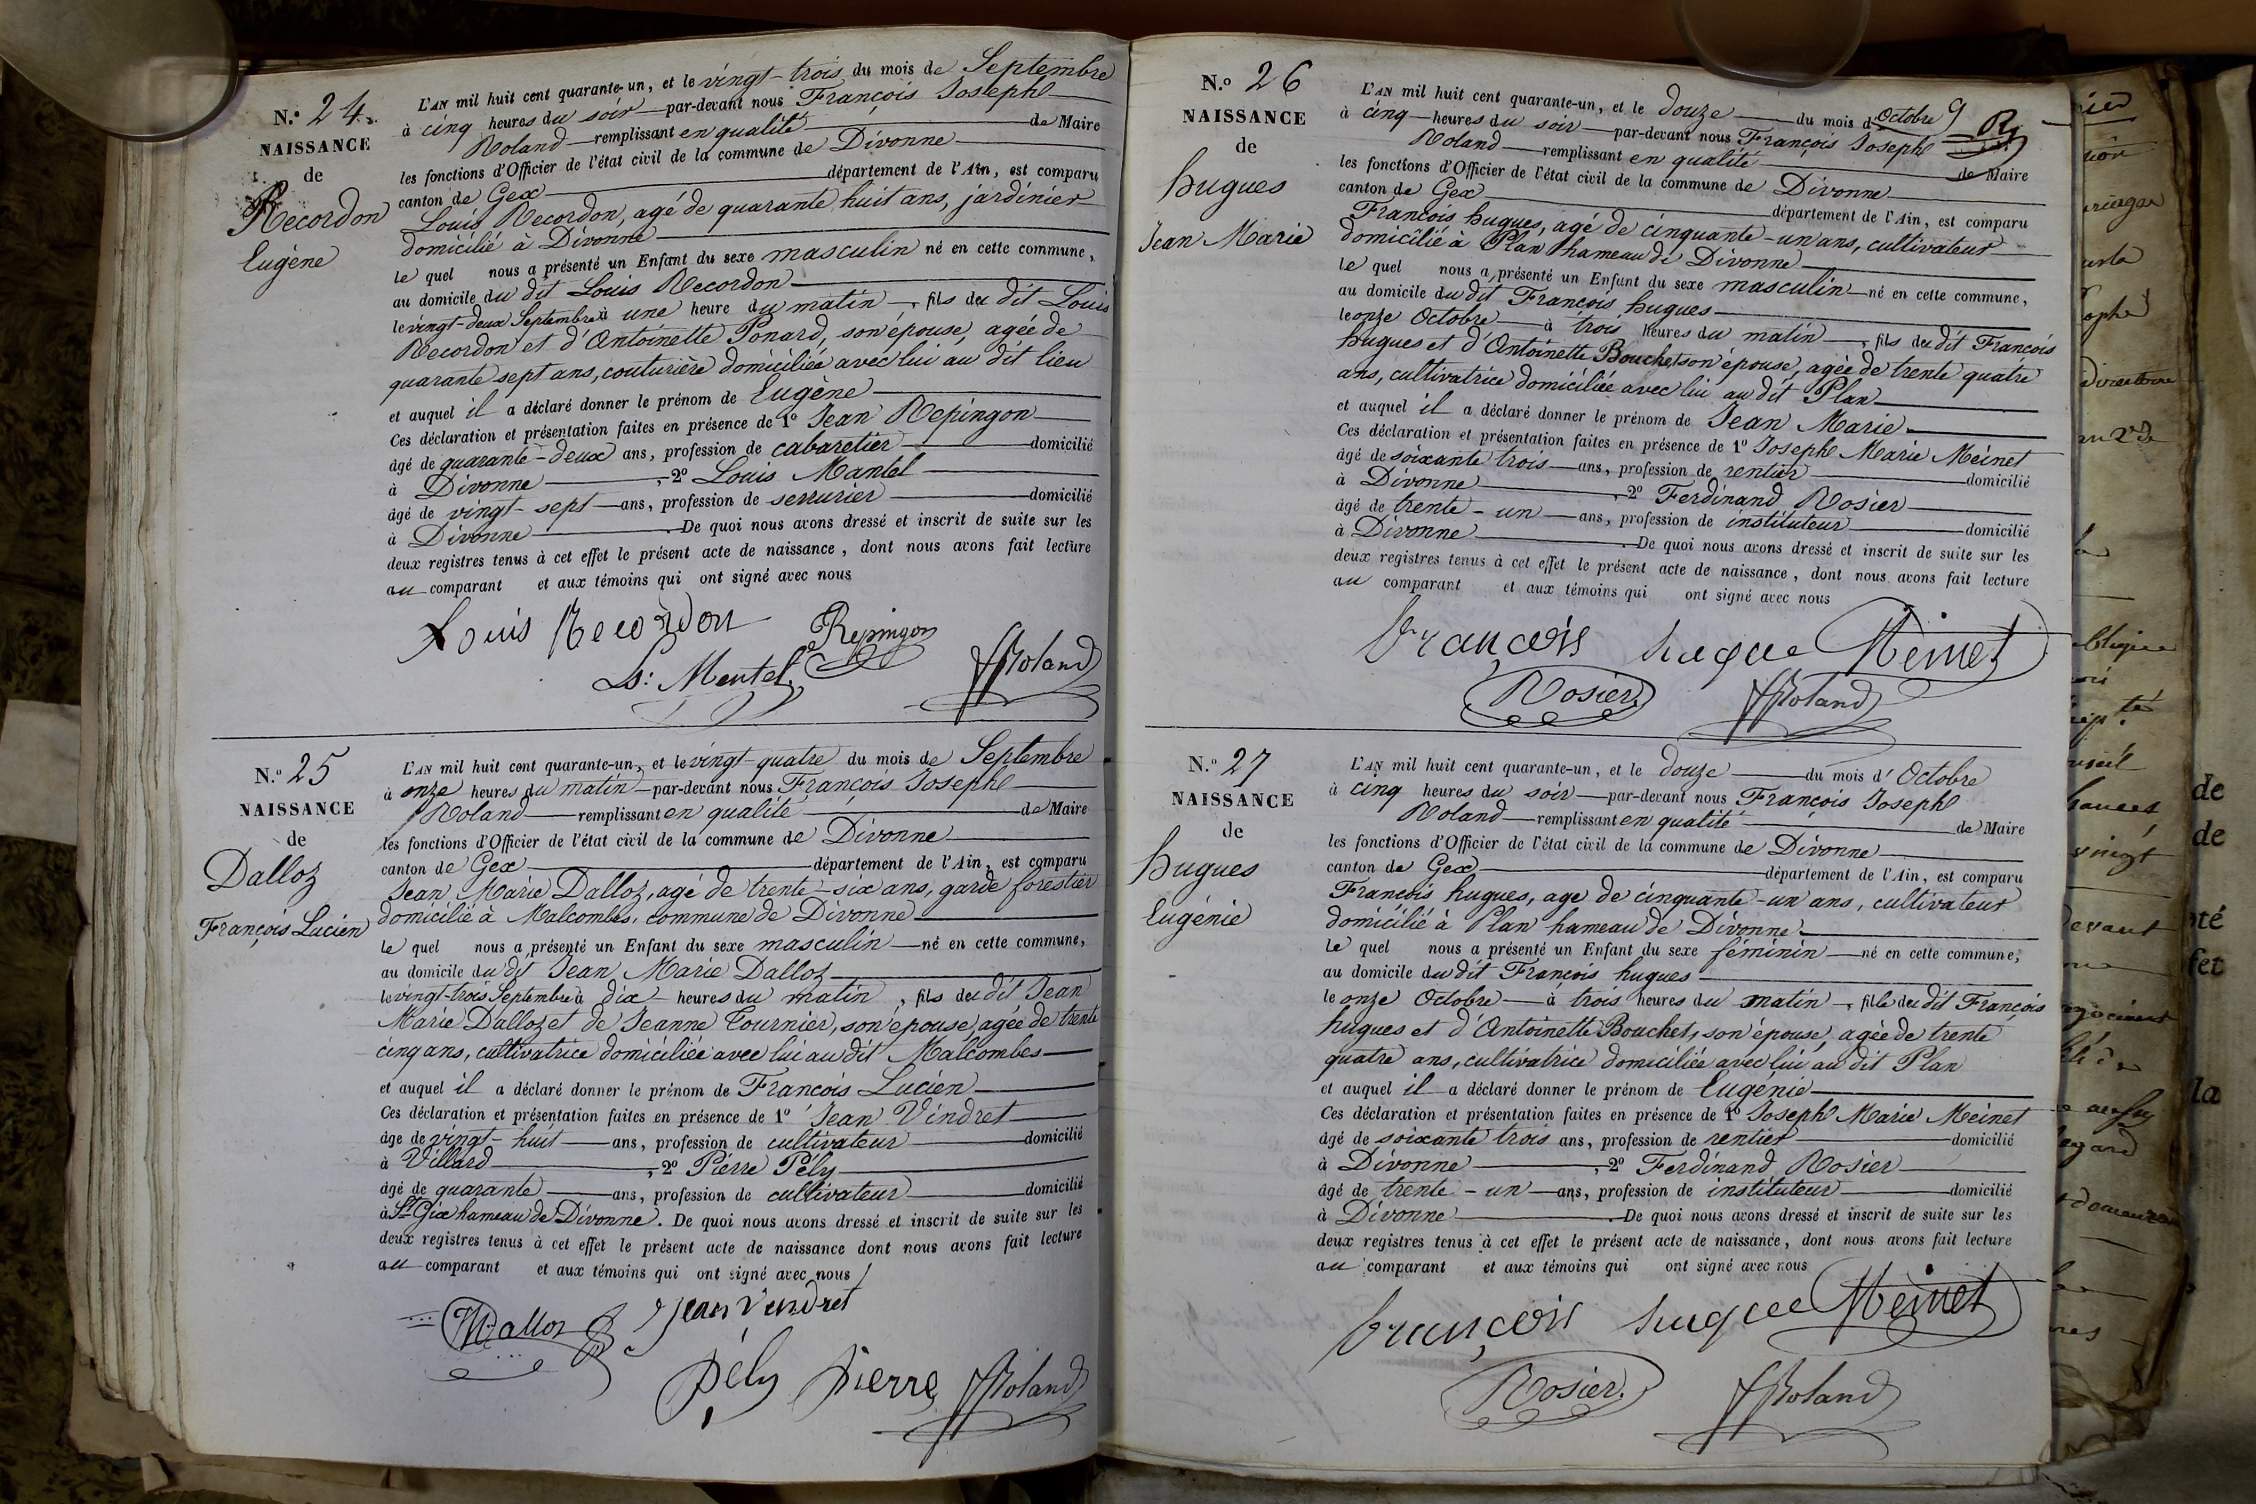 N.º 24.
NAISSANCE
de
Recordon
Eugène
L'AN mil huit cent quarante-un, et le vingt-trois du mois de Septembre
à cinq heures du soir par-devant nous François Joseph
Roland remplissant en qualité de Maire
les fonctions d'Officier de l'état civil de la commune de Divonne
canton de Gex département de l'Ain, est comparu
Louis Recordon, agé de quarante huit ans, jardinier
domicilié à Divonne
le quel nous a présenté un Enfant du sexe masculin né en cette commune,
au domicile du dit Louis Recordon
le vingt-deux Septembre à une heure du matin, fils du dit Louis
Recordon et d'Antoinette Ponard, son épouse, agée de
quarante sept ans, couturière domiciliée avec lui au dit lieu
et auquel il a déclaré donner le prénom de Eugène
Ces déclaration et présentation faites en présence de 1º Jean Repingon
âgé de quarante-deux ans, profession de cabaretier domicilié
à Divonne, 2º Louis Mantel
âgé de vingt-sept ans, profession de serrurier domicilié
à Divonne. De quoi nous avons dressé et inscrit de suite sur les
deux registres tenus à cet effet le présent acte de naissance, dont nous avons fait lecture
au comparant et aux témoins qui ont signé avec nous
Louis Recordon Repingon
Ls: Mentel. Roland
N.º 25
NAISSANCE
de
Dalloz
François Lucien
L'AN mil huit cent quarante-un, et le vingt-quatre du mois de Septembre
à onze heures du matin par-devant nous François Joseph
Roland remplissant en qualité de Maire
les fonctions d'Officier de l'état civil de la commune de Divonne
canton de Gex département de l'Ain, est comparu
Jean Marie Dalloz, agé de trente-six ans, garde forestier
domicilié à Malcombes, commune de Divonne
le quel nous a présenté un Enfant du sexe masculin né en cette commune,
au domicile du dit Jean Marie Dalloz
le vingt-trois Septembre à dix heures du matin, fils du dit Jean
Marie Dalloz et de Jeanne Tournier, son épouse, agée de trente
cinq ans, cultivatrice domiciliée avec lui au dit Malcombes
et auquel il a déclaré donner le prénom de François Lucien
Ces déclaration et présentation faites en présence de 1º Jean Vindret
âge de vingt-huit ans, profession de cultivateur domicilié
à Villard, 2º Pierre Pély
âgé de quarante ans, profession de cultivateur domicilié
à St Gix hameau de Divonne. De quoi nous avons dressé et inscrit de suite sur les
deux registres tenus à cet effet le présent acte de naissance dont nous avons fait lecture
au comparant et aux témoins qui ont signé avec nous
Dalloz Jean Vendret
Pély Pierre Roland
N.º 26
NAISSANCE
de
hugues
Jean Marie
L'AN mil huit cent quarante-un, et le douze du mois d'Octobre 9
à cinq heures du soir par-devant nous François Joseph
Roland remplissant en qualité de Maire
les fonctions d'Officier de l'état civil de la commune de Divonne
canton de Gex département de l'Ain, est comparu
François hugues, agé de cinquante-un ans, cultivateur
domicilié à Plan hameau de Divonne
le quel nous a présenté un Enfant du sexe masculin né en cette commune,
au domicile du dit François hugues
le onze Octobre à trois heures du matin, fils du dit François
hugues et d'Antoinette Bouchet, son épouse, agée de trente quatre
ans, cultivatrice domiciliée avec lui au dit Plan
et auquel il a déclaré donner le prénom de Jean Marie
Ces déclaration et présentation faites en présence de 1º Joseph Marie Meinet
âgé de soixante trois ans, profession de rentier domicilié
à Divonne, 2º Ferdinand Rosier
âgé de trente-un ans, profession de instituteur domicilié
à Divonne. De quoi nous avons dressé et inscrit de suite sur les
deux registres tenus à cet effet le présent acte de naissance, dont nous avons fait lecture
au comparant et aux témoins qui ont signé avec nous
françois hugue Meinet
Rosier Roland
N.º 27
NAISSANCE
de
hugues
Eugénie
L'AN mil huit cent quarante-un, et le douze du mois d'Octobre
à cinq heures du soir par-devant nous François Joseph
Roland remplissant en qualité de Maire
les fonctions d'Officier de l'état civil de la commune de Divonne
canton de Gex département de l'Ain, est comparu
François hugues, age de cinquante-un ans, cultivateur
domicilié à Plan hameau de Divonne
le quel nous a présenté un Enfant du sexe féminin né en cette commune,
au domicile du dit François hugues
le onze Octobre à trois heures du matin, fille du dit François
hugues et d'Antoinette Bouchet, son épouse, agée de trente
quatre ans, cultivatrice domiciliée avec lui au dit Plan
et auquel il a déclaré donner le prénom de Eugénie
Ces déclaration et présentation faites en présence de 1º Joseph Marie Meinet
âgé de soixante trois ans, profession de rentier domicilié
à Divonne, 2º Ferdinand Rosier
âgé de trente-un ans, profession de instituteur domicilié
à Divonne. De quoi nous avons dressé et inscrit de suite sur les
deux registres tenus à cet effet le présent acte de naissance, dont nous avons fait lecture
au comparant et aux témoins qui ont signé avec nous
françois hugue Meinet
Rosier. Roland